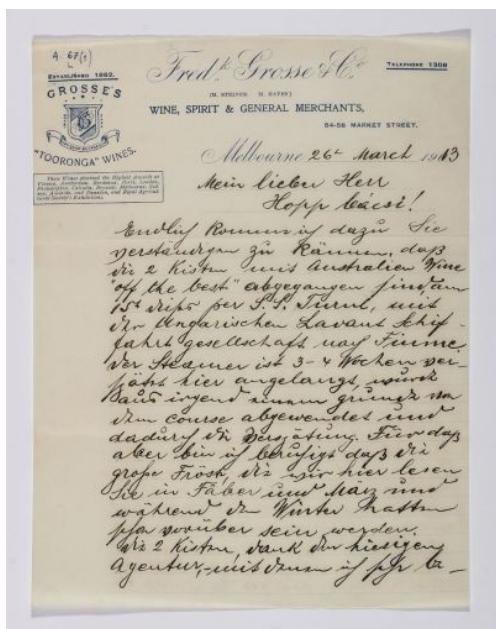 A. 67(1)
ESTABLISHED 1862.
GROSSE'S
"TOORONGA" WINES.
Fredk. Grosse & Co.
TELEPHONE 1308
WINE, SPIRIT & GENERAL MERCHANTS,
54-56 MARKET STREET,
Melbourne 26t March 1913
Mein lieber Herr
Hopp bácsi!
Endlich komme ich dazu Sie
verständigen zu können, daß
die 2 Kisten mit Australien Wine
"off the best" abgegangen sind am
15t per S.S. mit
der Ungarischen Lavant Schif-
fahrt gesellschaft nach Fiume
der Steamer ist 3-4 Wochen ver-
spätet hier angelangt, wurde
aus irgend einem grunde von
dem course abgewendet und
dadurch die Verspätung. Für daß
aber bin ich beruhigt daß die
große Fröste, die wir hier lesen
Sie in Feber und März und
während den Winter hatten
schon vorüber sein werden.
die 2 Kisten, dank der hiesigen
Agentur, - mit denen ich sehr be-